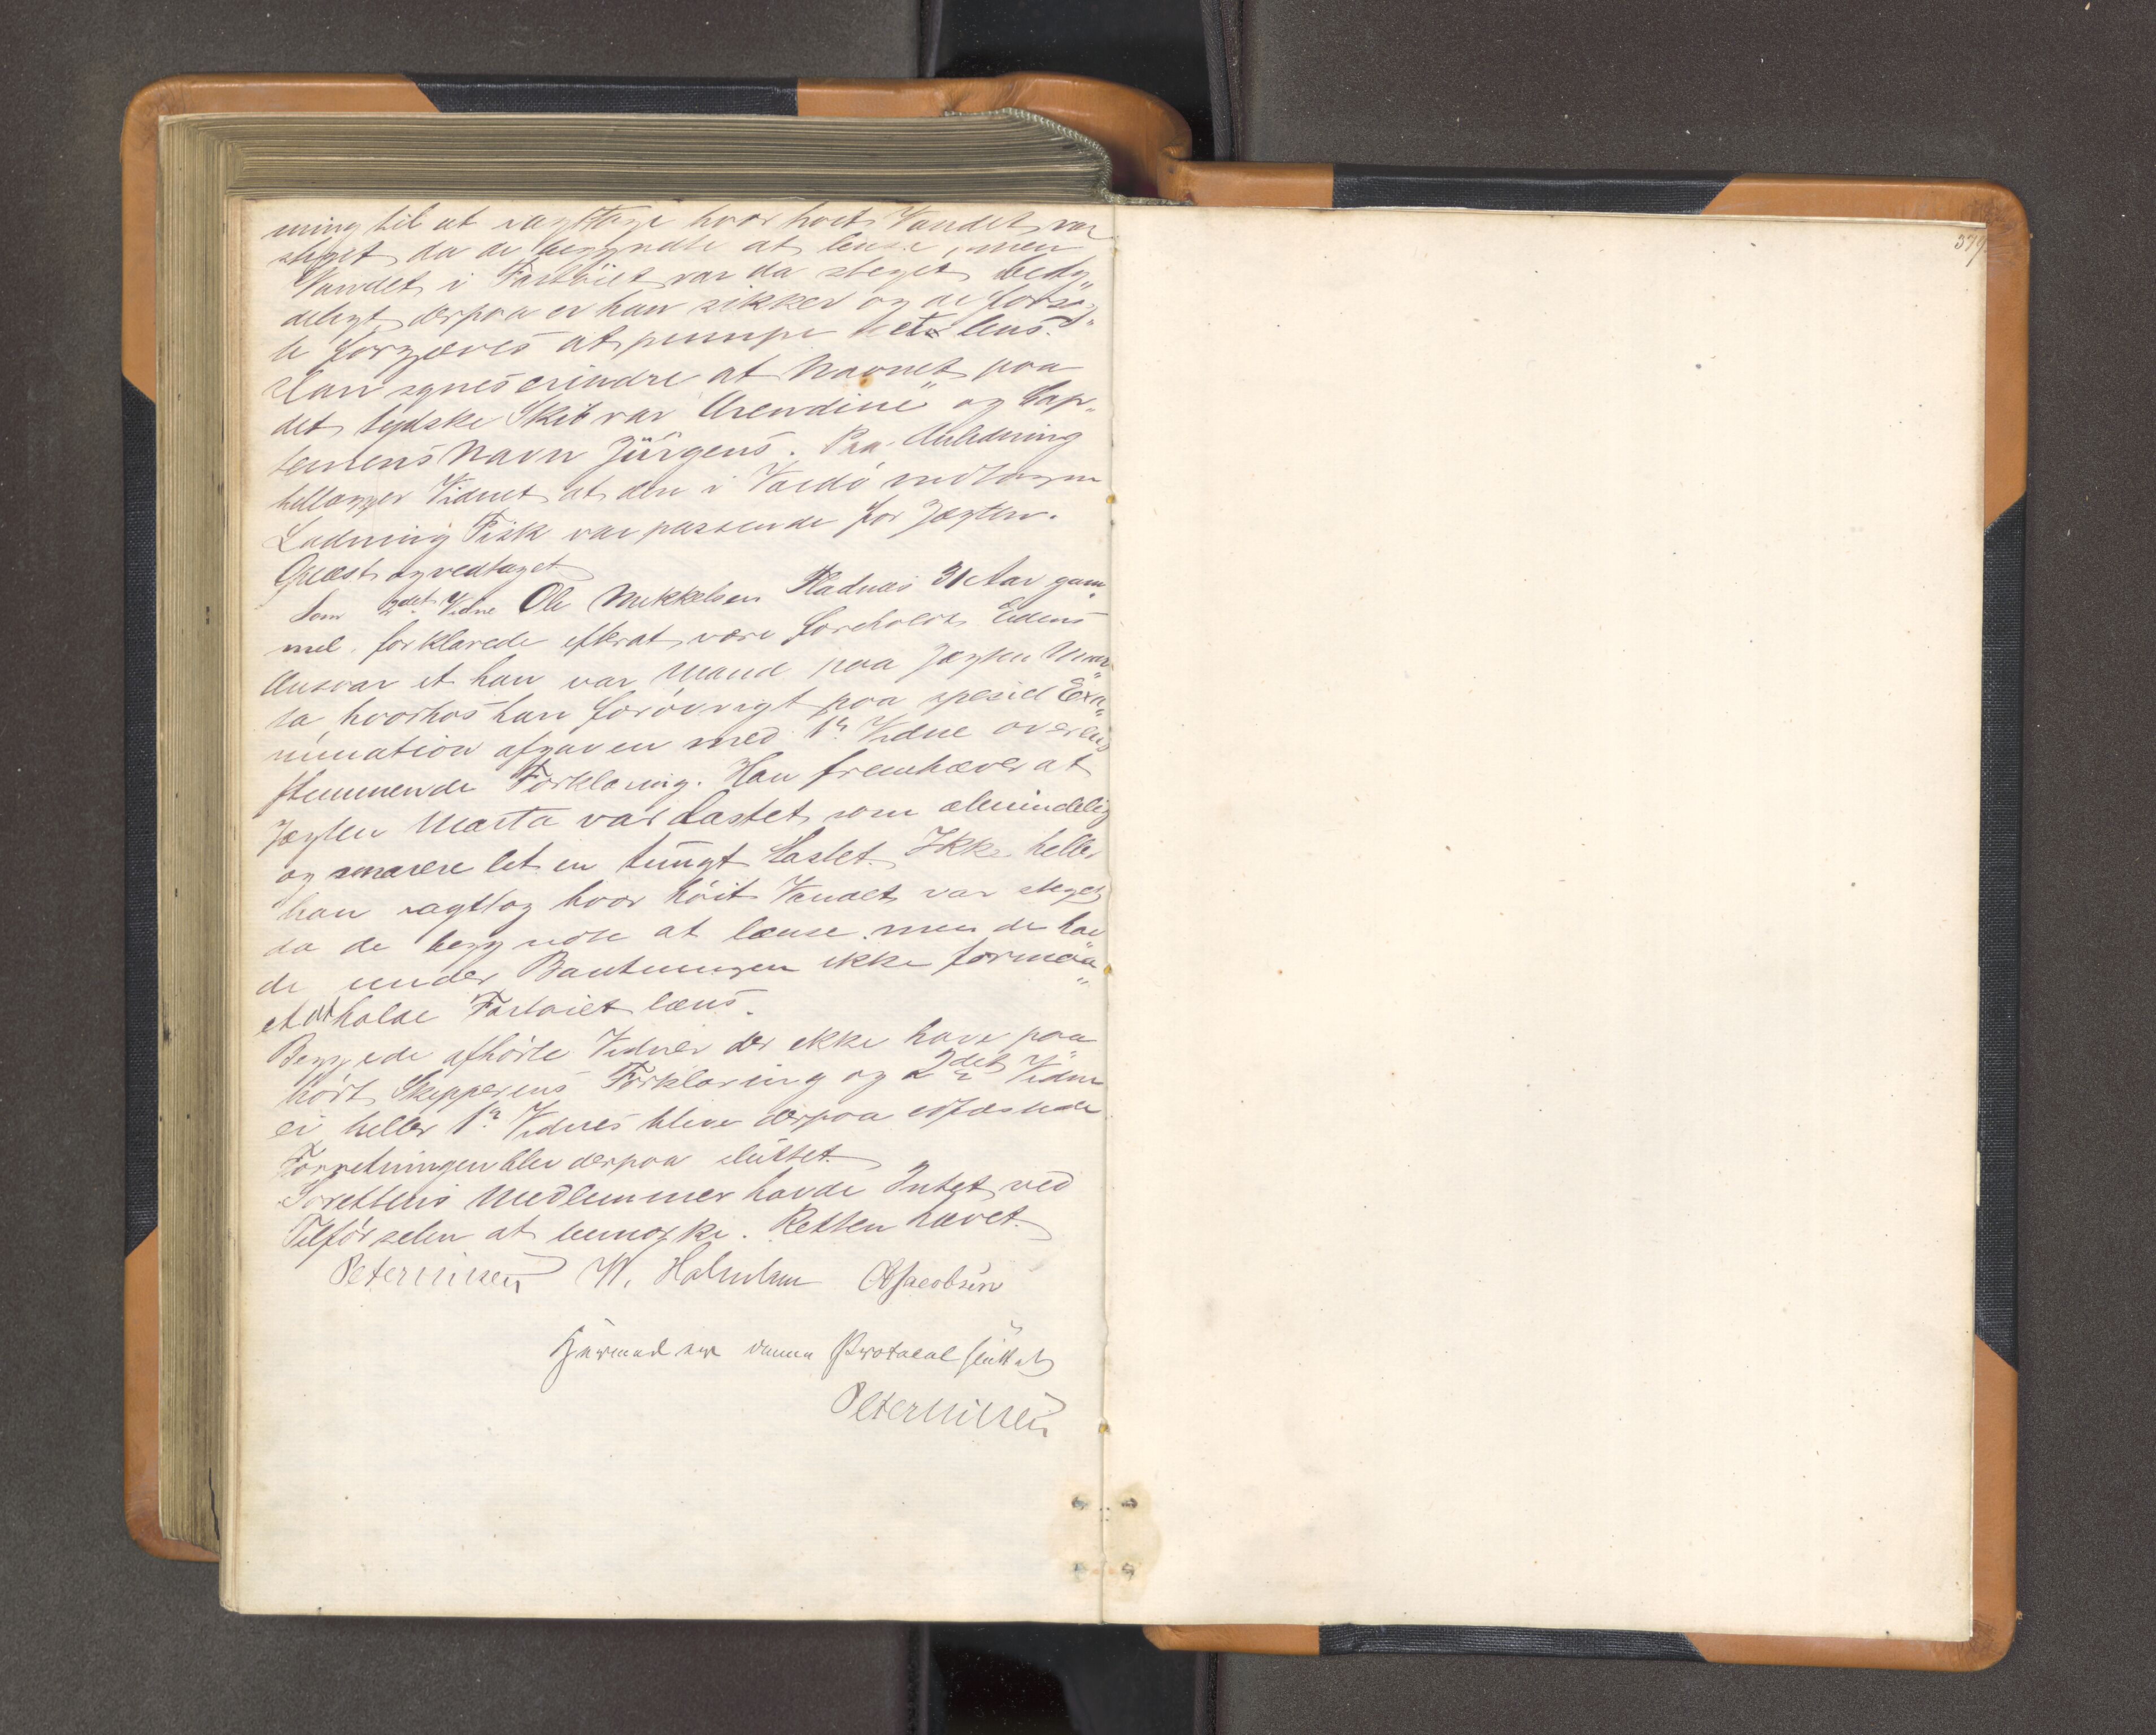 ning til at iagttage hvor høit Vandet var
steget da de begyndte at lænse, men
Vandet i Fartöiet var da steget bety„
deligt, derpaa er han sikker og de forsøg„
te forgjæves at pumpe det læns.
Han synes erindre at Navnet paa
det tydske Skib var "Arendine" og Cap„
teinens Navn Jürgens. Paa Anledning
tillægger Vidnet at den i Vardö indtagne
Ladning Fisk var passende for Jagten.
Oplæst og vedtaget
Som 2det Vidne Ole Mikkelsen 31 Aar gam„
mel. forklarede efterat være foreholdt Edens
Ansvar at han var Mand paa Jagten Mar„
ta, hvorhos han forövrigt paa speciel Exa„
mination afgav en med 1ste Vidne overens
stemmende Forklaring. Han fremhæver at
Jagten Marta var lastet som almindelig
og snarere let en tungt lastet. Ikke heller
han iagttog hvor höit Vandet var steget
da de begyndte at lænse men de hav
de under Bautningen ikke formaa„
et at holde Fartöiet læns.
Begge de afhörte Vidner der ikke have paa
hört Skipperens Forklaring og 2det Vidne
ei heller 1ste Vidnes bleve derpaa edfæstede
Forretningen blev derpaa sluttet.
Sörettens Medlemmer havde Intet ved
Tilförselen at bemærke. Retten hævet.
Peter Nissen W. Holmboe Jacobsen
Hermed er denne Protocol sluttet
Peter Nissen
379